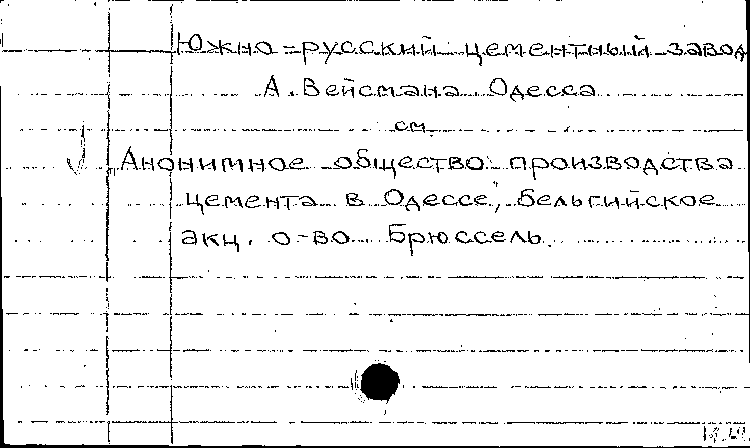 Южно-русский цементный завод
А. Вейсмана Одесса
см.
„Анонимное общество производства
цемента в Одессе", бельгийское
акц. о-во Брюссель.